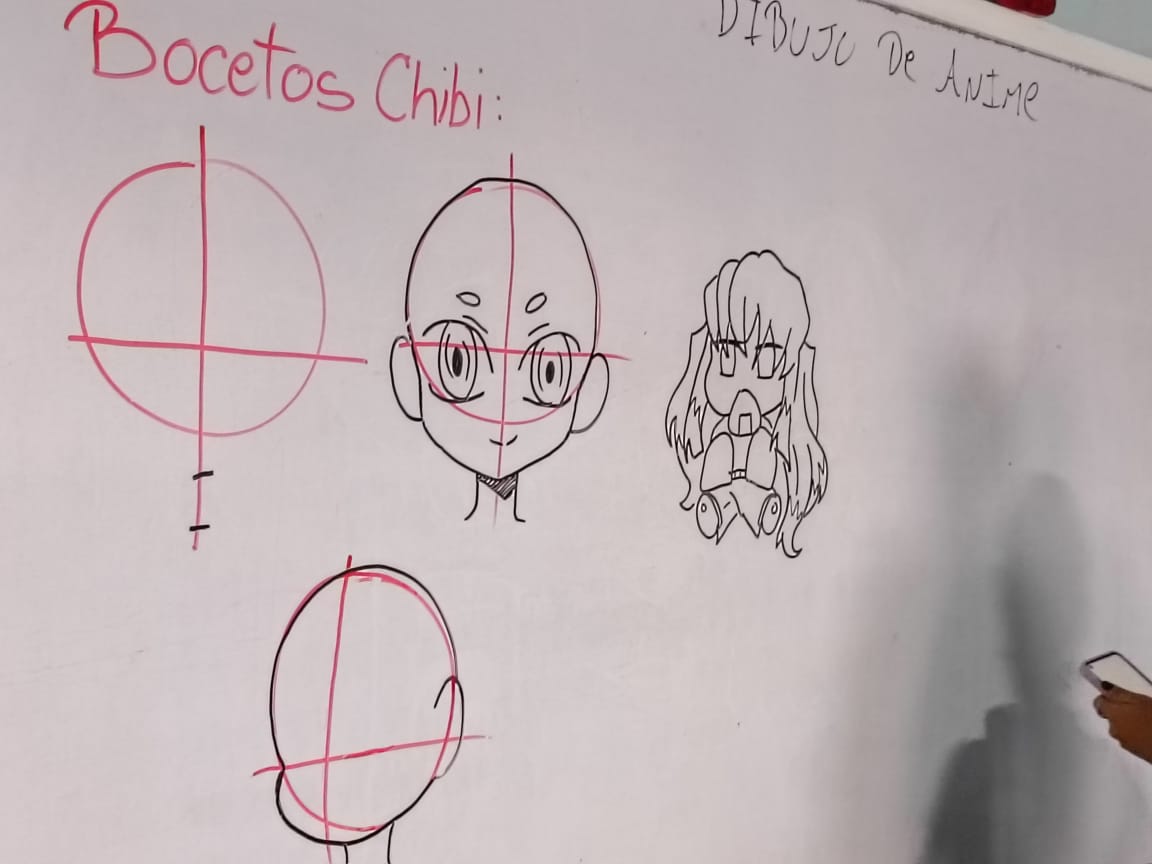 Bocetos Chibi:
DIBUJO De ANIMe